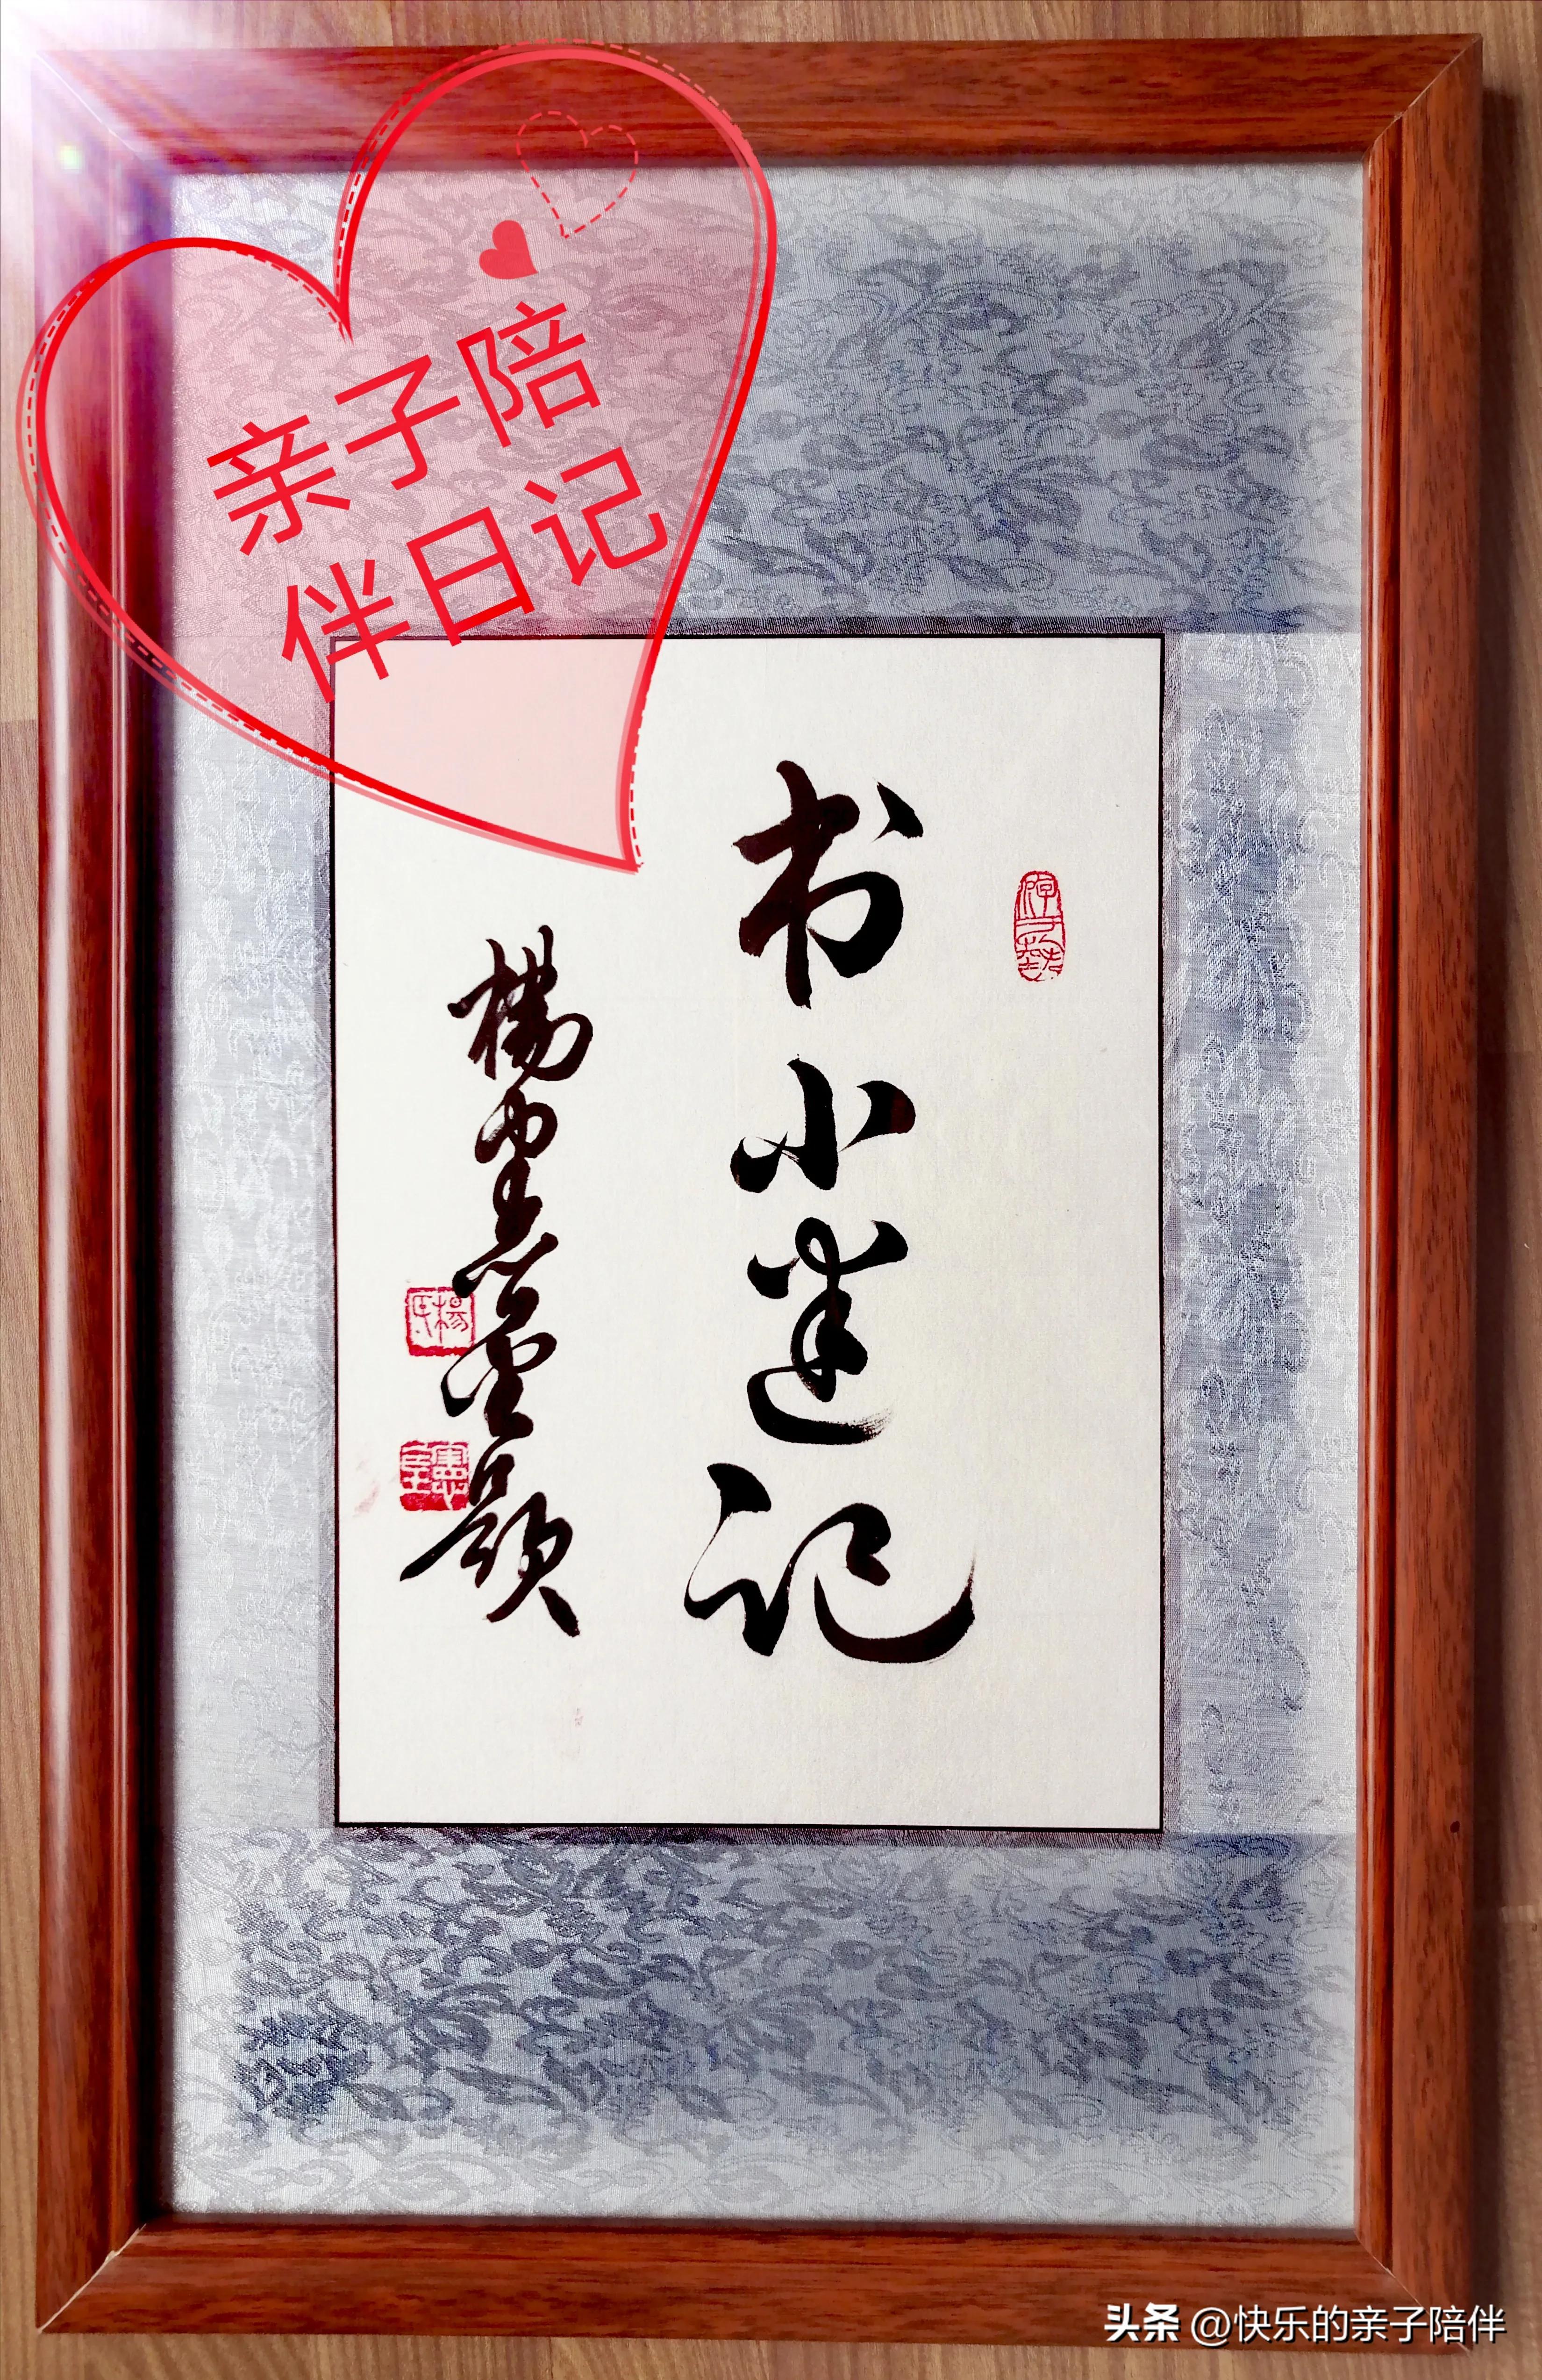 亲子陪
伴日记
书小迷记
楊 题
楊氏
头条 @快乐的亲子陪伴